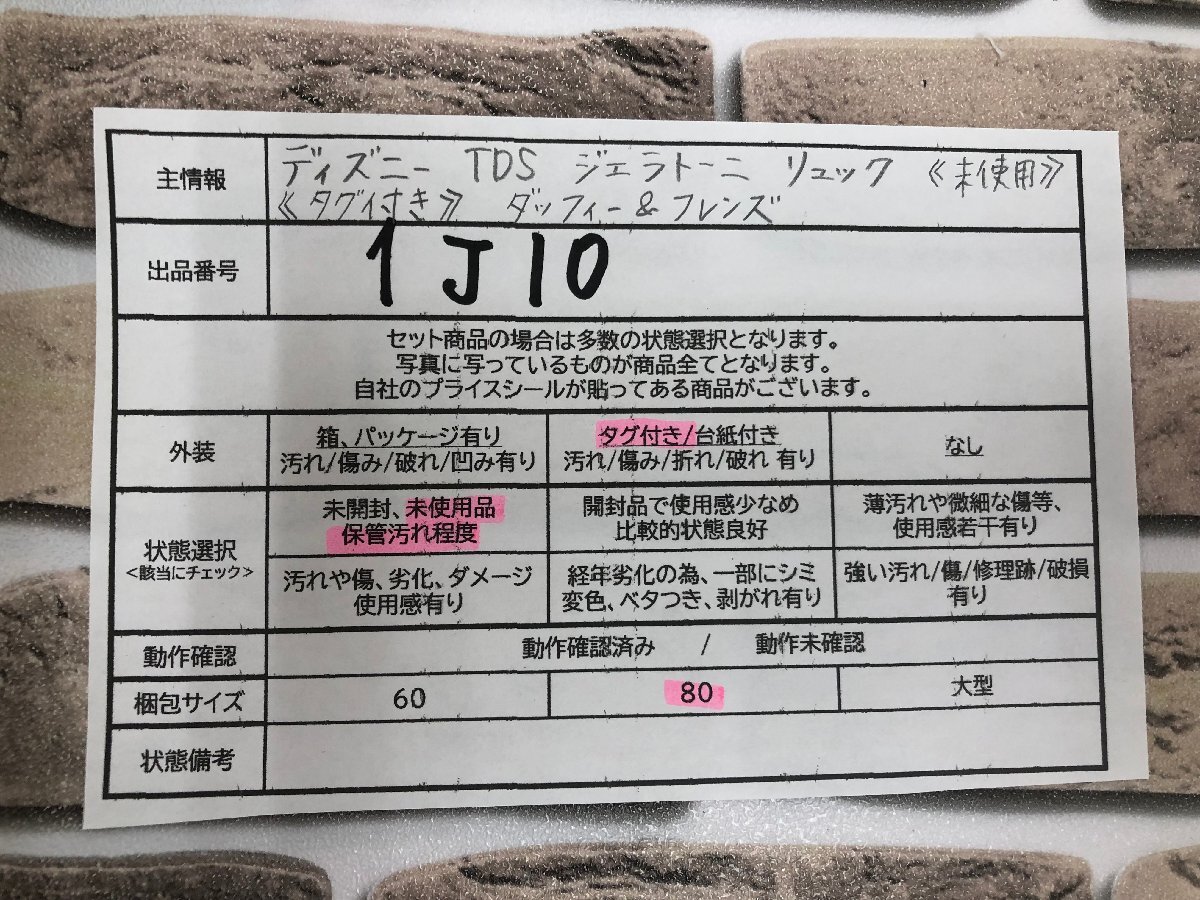 主情報
ディズニー TDS ジェラトーニ リュック 《未使用》
《タグ付き》 ダッフィー&フレンズ
出品番号
1J10
セット商品の場合は多数の状態選択となります。
写真に写っているものが商品全てとなります。
自社のプライスシールが貼ってある商品がございます。
外装
箱、パッケージ有り
汚れ/傷み/破れ/凹み有り
タグ付き/台紙付き
汚れ/傷み/折れ/破れ 有り
なし
状態選択
<該当にチェック>
未開封、未使用品
保管汚れ程度
開封品で使用感少なめ
比較的状態良好
薄汚れや微細な傷等、
使用感若干有り
汚れや傷、劣化、ダメージ
使用感有り
経年劣化の為、一部にシミ
変色、ベタつき、剥がれ有り
強い汚れ/傷/修理跡/破損
有り
動作確認
動作確認済み / 動作未確認
梱包サイズ
60
80
大型
状態備考